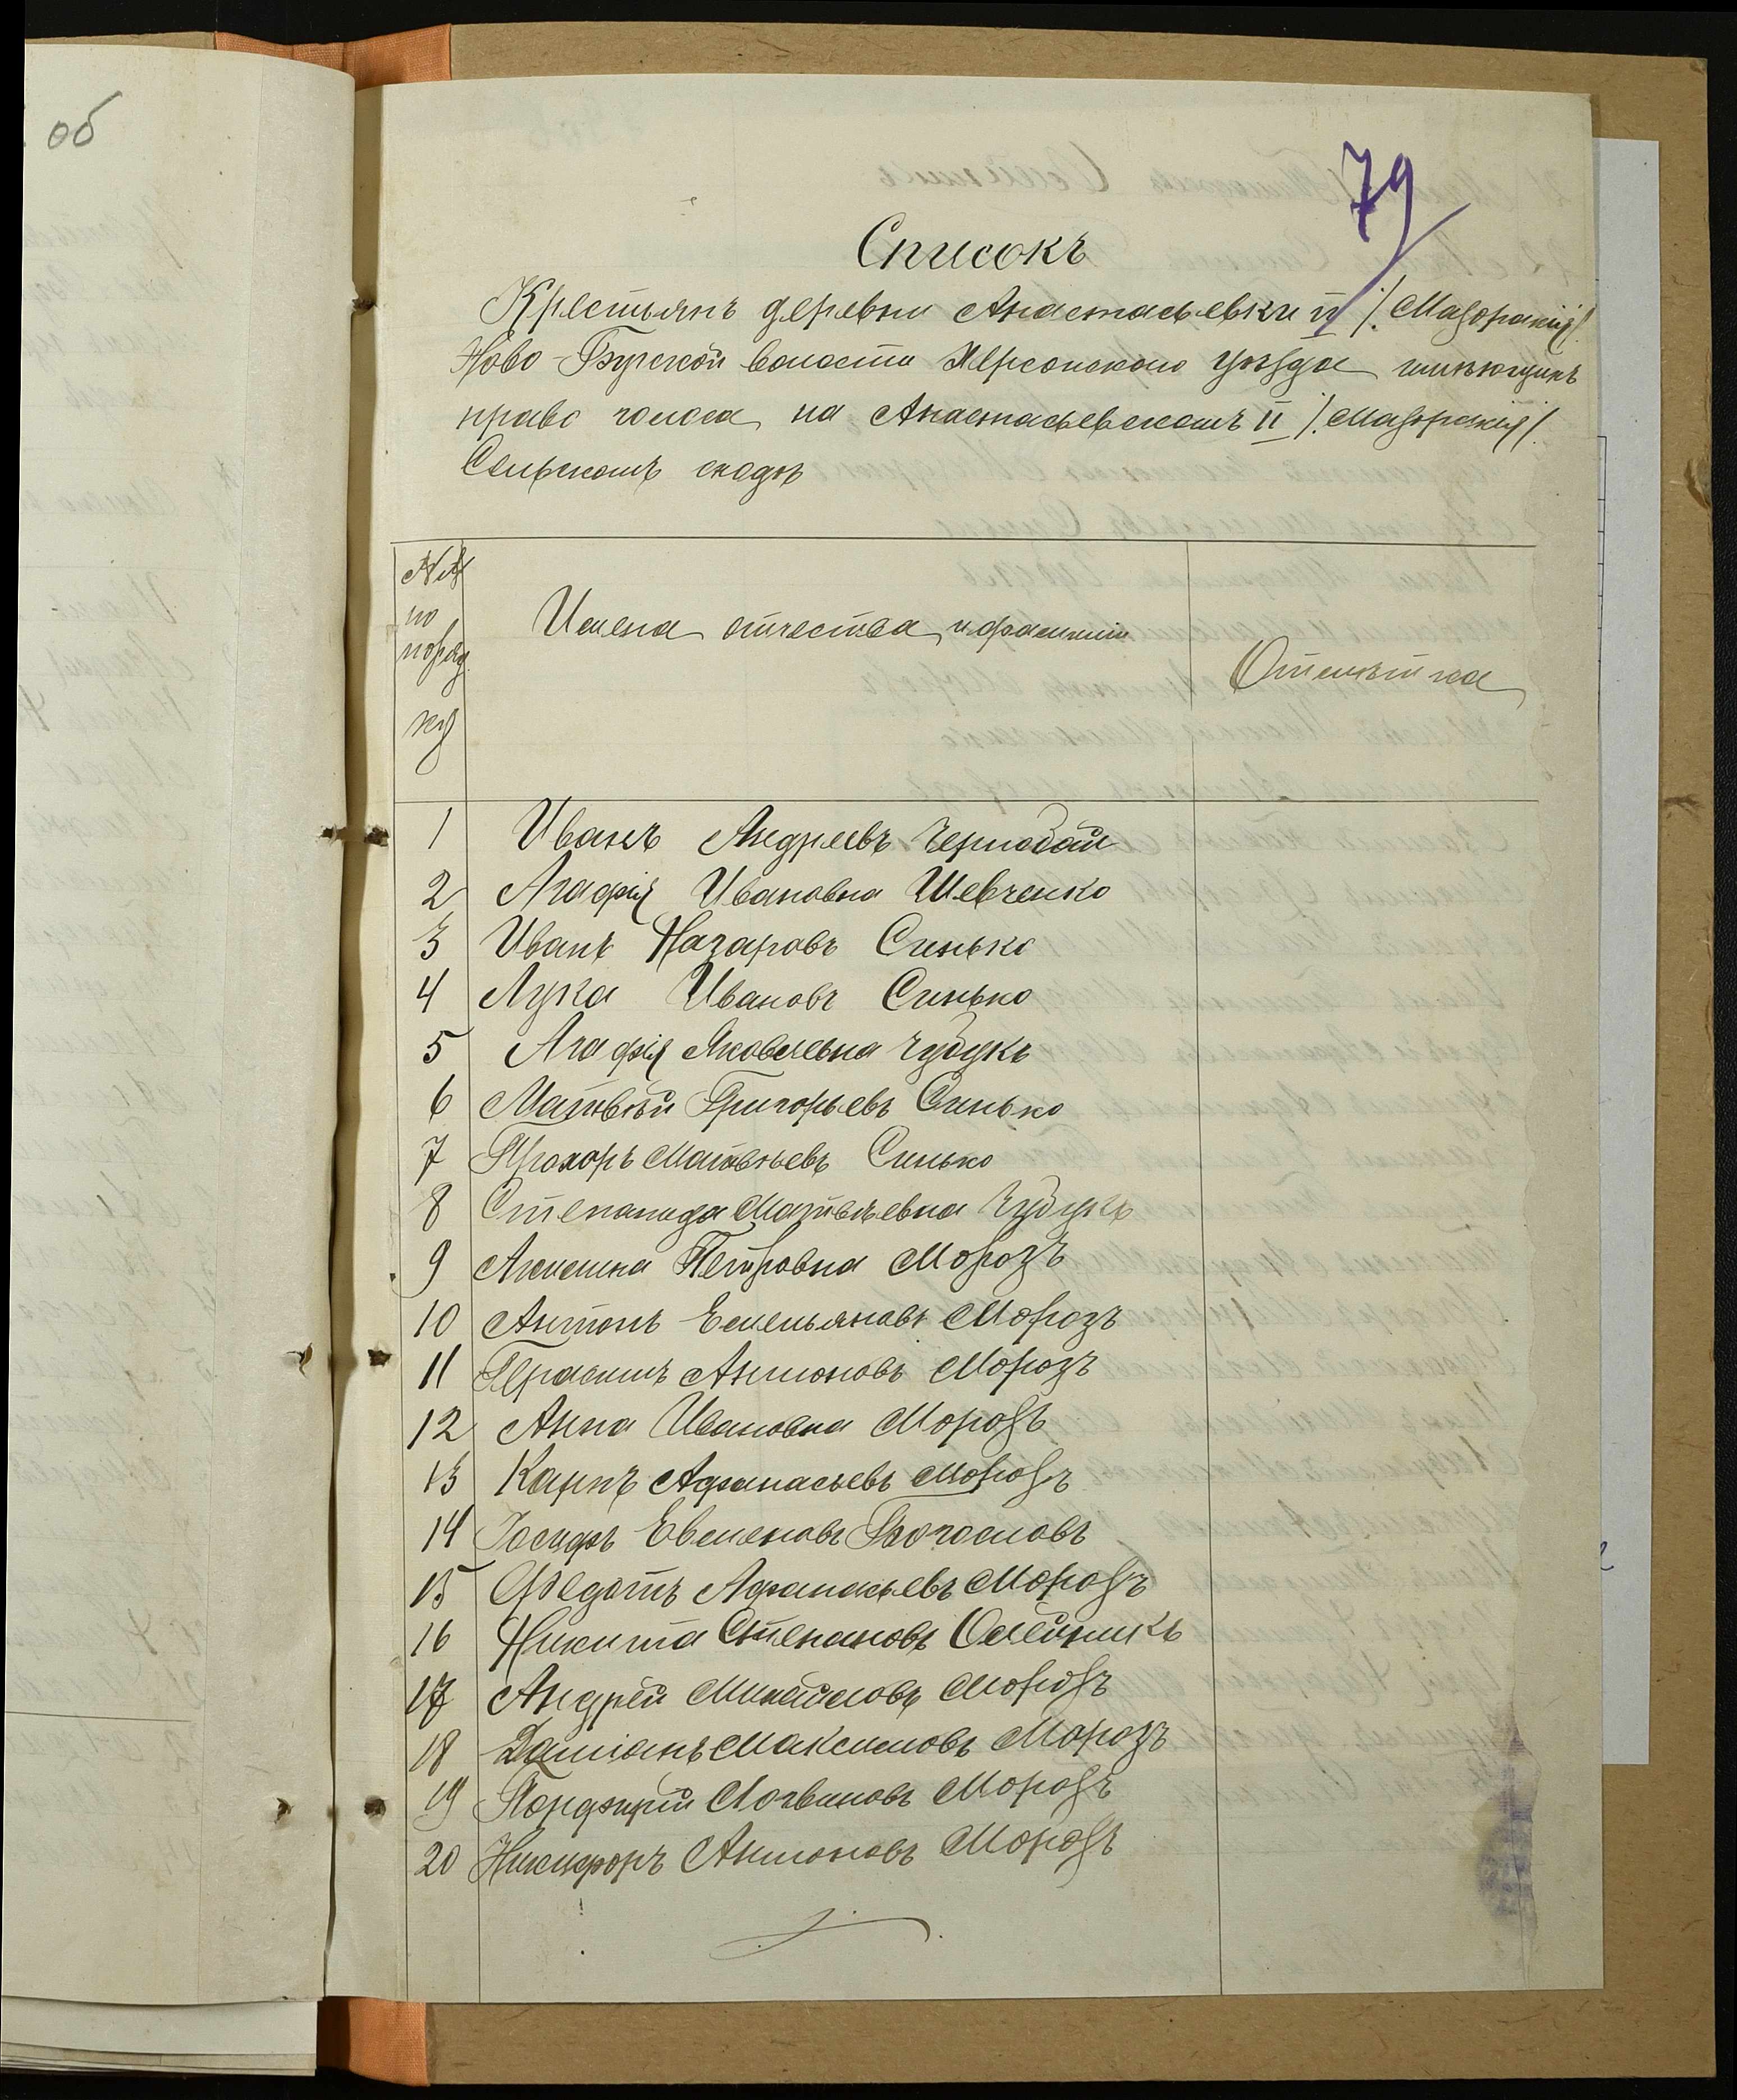 об
79
Списокъ
Крестьянъ деревни Анастасьевки II /. Мазоракiя/.
Ново-Бугской волости Херсонского уѣзда имѣющихъ
право голоса на Анастасьевскомъ II /. Мазоракiя/.
Сельскомъ сходѣ
№№ по порядку
Имена отчества и фамилiи
Отмѣтка
1 Иванъ Андреевъ Чернобай
2 Агафiя Ивановна Шевченко
3 Иванъ Назаровъ Синько
4 Лука Ивановъ Синько
5 Агафiя Яковлевна Чубукъ
6 Матвѣй Григорьевъ Синько
7 Прохоръ Матвѣевъ Синько
8 Степанида Матвѣевна Чубукъ
9 Аксинья Петровна Морозъ
10 Антонъ Емельяновъ Морозъ
11 Герасимъ Антоновъ Морозъ
12 Анна Ивановна Морозъ
13 Карпъ Афанасьевъ Морозъ
14 Iосифъ Евменовъ Богословъ
15 Федотъ Афанасьевъ Морозъ
16 Никита Степановъ Олейникъ
17 Андрей Михайловъ Морозъ
18 Дамiанъ Максимовъ Морозъ
19 Порфирiй Логвиновъ Морозъ
20 Никифоръ Антоновъ Морозъ